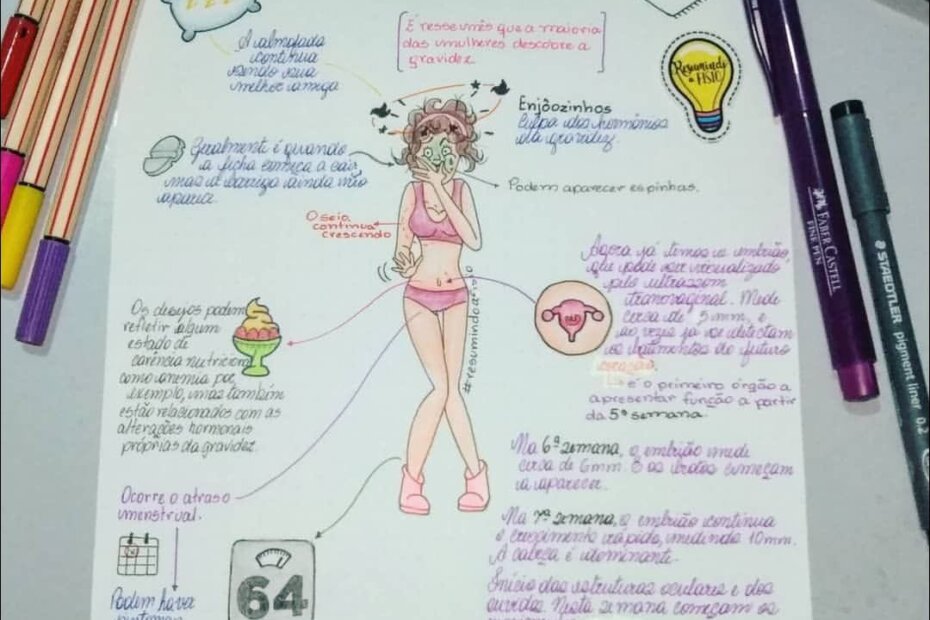 A almofada
continua
sendo sua
melhor amiga
É nesse mês que a maioria
das mulheres descobre a
gravidez
Resumindo
a FISIO
Enjôozinhos
Culpa dos hormônios
da gravidez.
Geralmente é quando
a ficha começa a cair,
mas a barriga ainda não
aparia.
Podem aparecer espinhas.
O seio
continua
crescendo
Agora já temos o embrião,
que pode ser visualizado
pelo ultrassom
transvaginal. Mede
cerca de 5mm, e
às vezes já se detectam
os batimentos do futuro
coração.
é o primeiro órgão a
apresentar função a partir
da 5ª semana.
Os desejos podem
refletir algum
estado de
carência nutricional
como anemia por
exemplo, mas também
estão relacionados com as
alterações hormonais
próprias da gravidez.
#resumindoafisio
Na 6ª semana, o embrião mede
cerca de 6mm. E os brotos começam
a aparecer.
Ocorre o atraso
menstrual.
Na 7ª semana, o embrião continua
o crescimento rápido, medindo 10mm.
A cabeça é dominante.
Início das estruturas oculares e dos
ouvidos. Nesta semana começam os
64
Podem haver
FABER CASTELL
FINE PEN
STAEDTLER
pigment liner 0.2